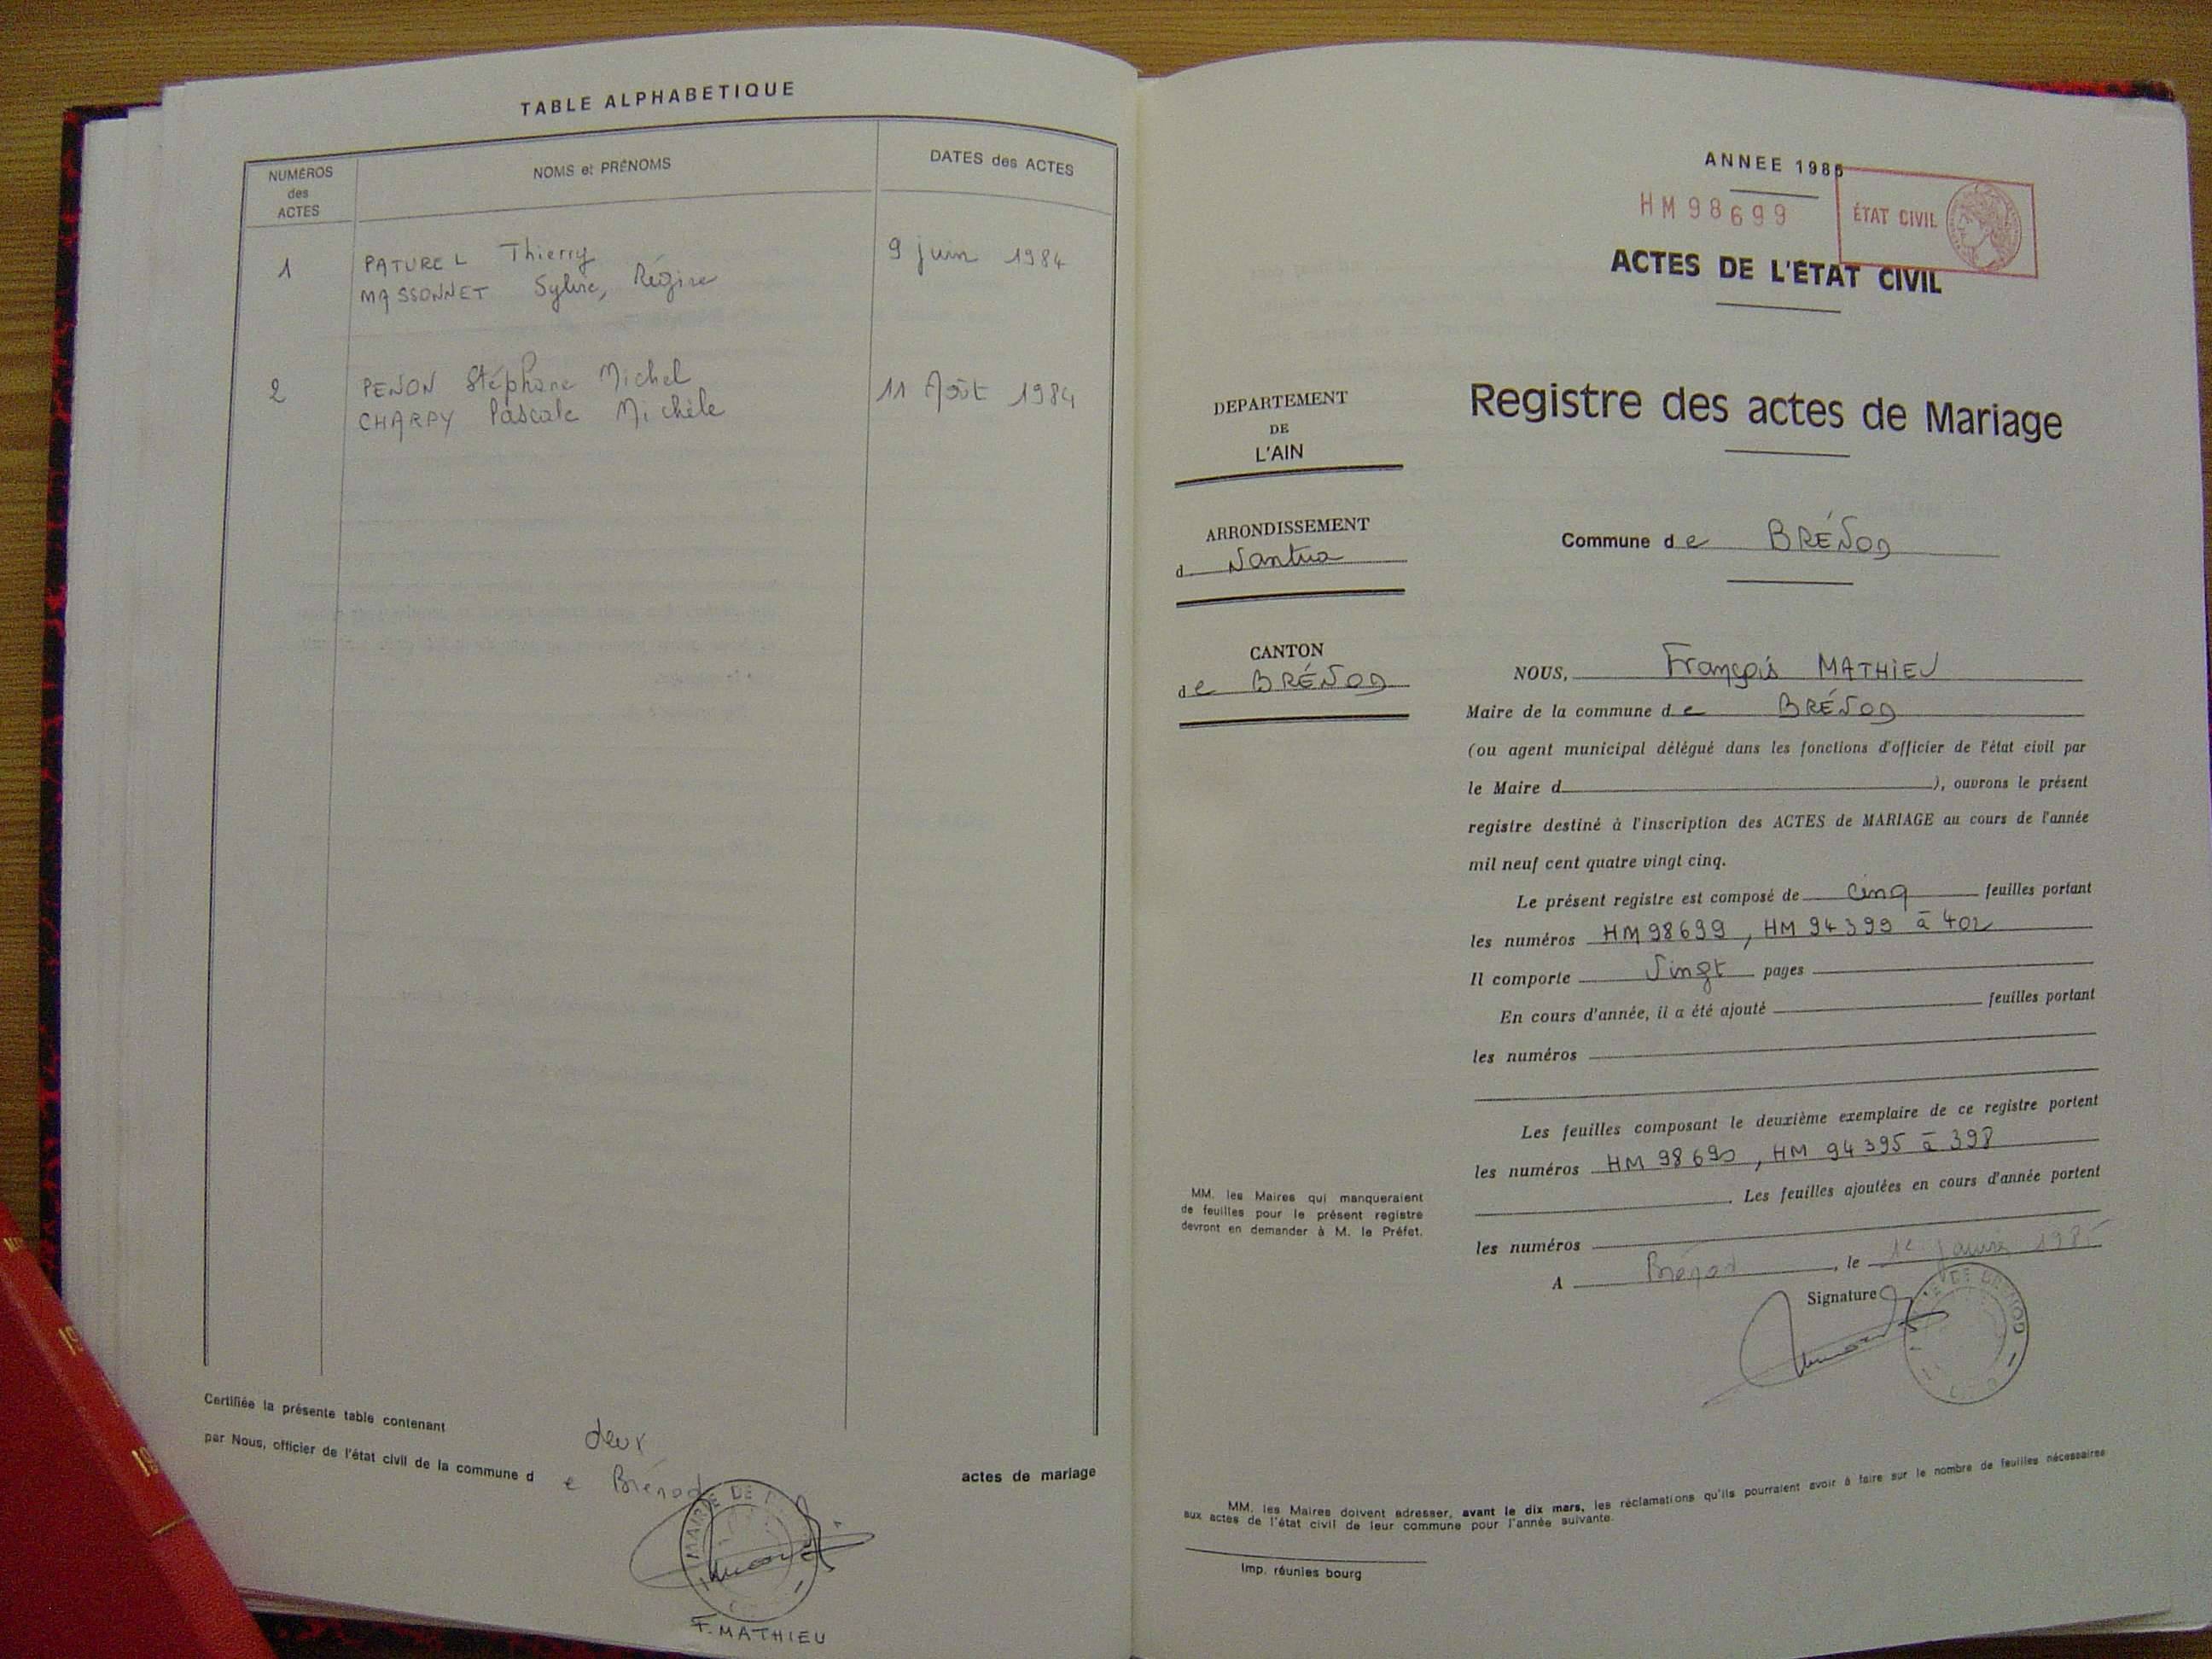 TABLE ALPHABETIQUE
NUMÉROS
des
ACTES
NOMS et PRÉNOMS
DATES des ACTES
1
PATUREL Thierry
9 juin 1984
MASSONNET Sylvie, Régine
2
PENON Stéphane Michel
11 Août 1984
CHARPY Pascale Michèle
Certifiée la présente table contenant deux actes de mariage
par Nous, officier de l'état civil de la commune de Brénod
MAIRIE DE
F. MATHIEU
ANNEE 1985
HM98699
ÉTAT CIVIL
ACTES DE L'ÉTAT CIVIL
Registre des actes de Mariage
DEPARTEMENT
DE
L'AIN
ARRONDISSEMENT
d Nantua
CANTON
de BRÉNOD
Commune de BRÉNOD
NOUS, François MATHIEU
Maire de la commune de BRÉNOD
(ou agent municipal délégué dans les fonctions d'officier de l'état civil par
le Maire d ), ouvrons le présent
registre destiné à l'inscription des ACTES de MARIAGE au cours de l'année
mil neuf cent quatre vingt cinq.
Le présent registre est composé de cinq feuilles portant
les numéros HM 98699, HM 94399 à 402
Il comporte Vingt pages
En cours d'année, il a été ajouté feuilles portant
les numéros
Les feuilles composant le deuxième exemplaire de ce registre portent
les numéros HM 98690, HM 94395 à 398
. Les feuilles ajoutées en cours d'année portent
les numéros
A Brénod, le 1e janvier 1985
Signature
DE BRENOD
MM. les Maires qui manqueraient
de feuilles pour le présent registre
devront en demander à M. le Préfet.
MM. les Maires doivent adresser, avant le dix mars, les réclamations qu'ils pourraient avoir à faire sur le nombre de feuilles nécessaires
aux actes de l'état civil de leur commune pour l'année suivante.
Imp. réunies bourg